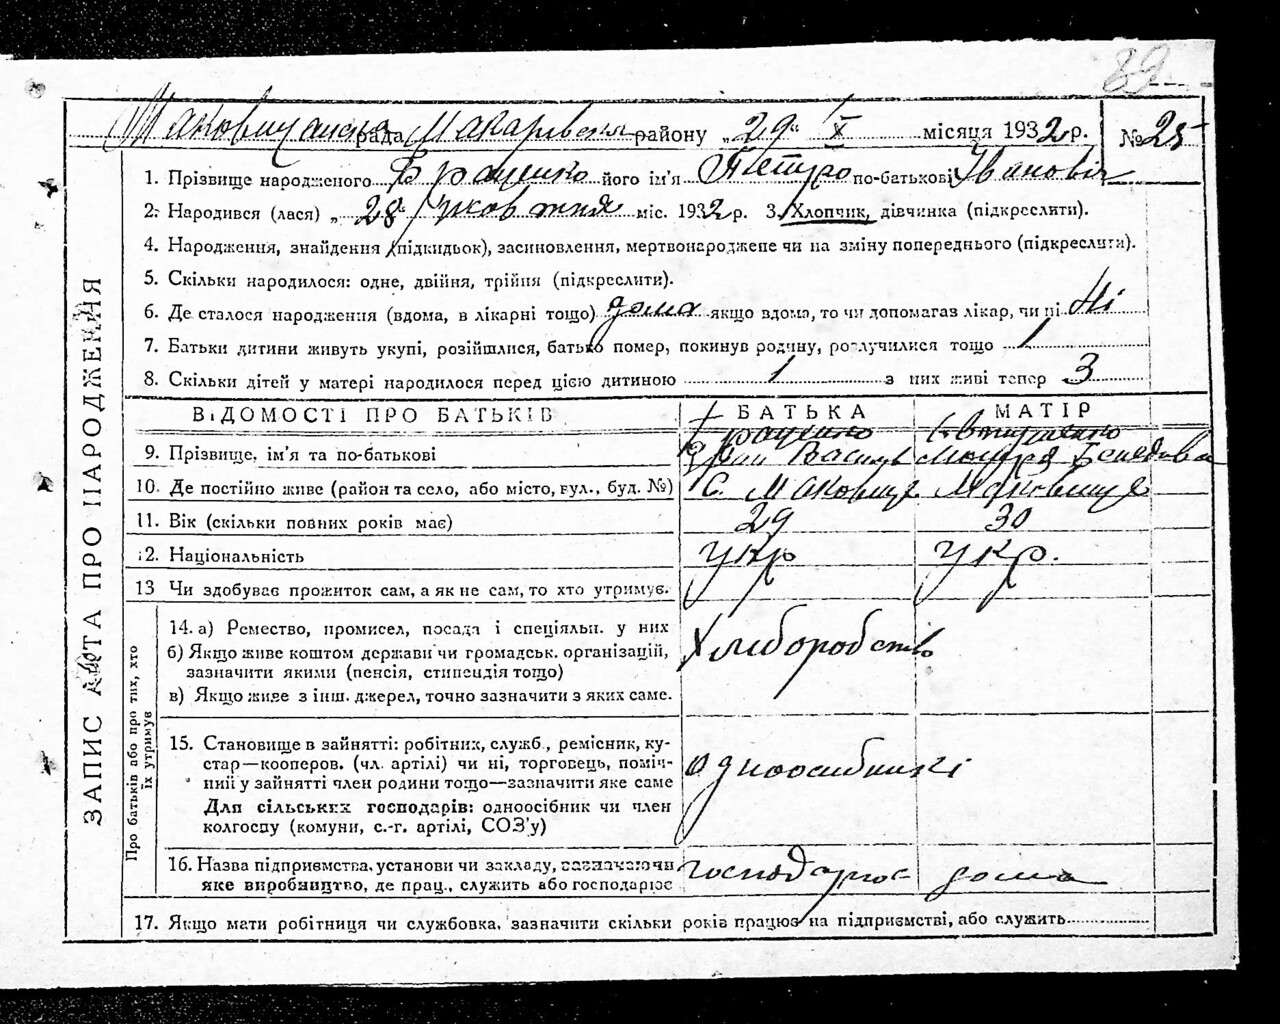 39
Маковищанська рада Макарівськ району „29“ X місяця 1932 р. № 25
ЗАПИС АКТА ПРО НАРОДЖЕННЯ
1. Прізвище народженого його ім'я Петро по-батькові Іванович
2. Народився (лася) „28“ жовтня міс. 1932 р. 3. Хлопчик, дівчинка (підкреслити).
4. Народження, знайдення (підкидьок), засиновлення, мертвонароджене чи на зміну попереднього (підкреслити).
5. Скільки народилося: одне, двійня, трійня (підкреслити).
6. Де сталося народження (вдома, в лікарні тощо) дома якщо вдома, то чи допомагав лікар, чи ні Ні
7. Батьки дитини живуть укупі, розійшлися, батько помер, покинув родину, розлучилися тощо 1
8. Скільки дітей у матері народилося перед цією дитиною 1 з них живі тепер 3
ВІДОМОСТІ ПРО БАТЬКІВ БАТЬКА МАТІР
9. Прізвище, ім'я та по-батькові
10. Де постійно живе (район та село, або місто, вул., буд. №) С. Маковище Маковище
11. Вік (скільки повних років має) 29 30
12. Національність укр укр.
13 Чи здобуває прожиток сам, а як не сам, то хто утримує.
Про батьків або про тих, хто їх утримує
14. а) Ремество, промисел, посада і спеціяльн. у них
б) Якщо живе коштом держави чи громадськ. організацій,
зазначити якими (пенсія, стипендія тощо)
в) Якщо живе з інш. джерел, точно зазначити з яких саме.
Хліборобство
15. Становище в зайнятті: робітник, служб., ремісник, ку-
стар—кооперов. (чл. артілі) чи ні, торговець, поміч-
ний у зайнятті член родини тощо—зазначити яке саме
Для сільських господарів: одноосібник чи член
колгоспу (комуни, с.-г. артілі, СОЗ'у)
одноосібники
16. Назва підприємства, установи чи закладу, зазначаючи
яке виробництво, де прац., служить або господарює
господарює дома
17. Якщо мати робітниця чи службовка, зазначити скільки років працює на підприємстві, або служить